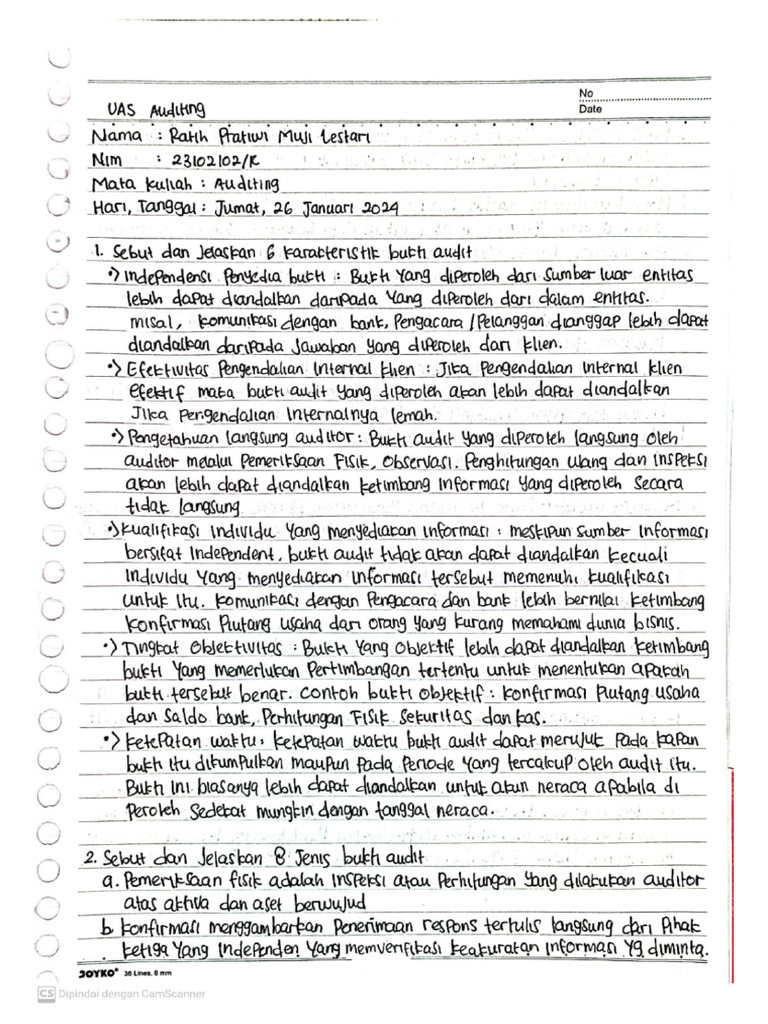 No
Date
UAS Auditing
Nama : Ratih Pratiwi Muji Lestari
Nim : 23102102/R
Mata kuliah : Auditing
Hari, Tanggal : Jumat, 26 Januari 2024
1. Sebut dan Jelaskan 6 karakteristik bukti audit
•> Independensi Penyedia bukti : Bukti Yang diperoleh dari sumber luar entitas
lebih dapat diandalkan daripada Yang diperoleh dari dalam entitas.
misal, komunikasi dengan bank, Pengacara/Pelanggan dianggap lebih dapat
diandalkan daripada Jawaban yang diperoleh dari klien.
•> Efektivitas Pengendalian Internal klien : Jika Pengendalian Internal klien
efektif maka bukti audit Yang diperoleh akan lebih dapat diandalkan
Jika Pengendalian Internalnya lemah.
•> Pengetahuan langsung auditor : Bukti audit Yang diperoleh langsung oleh
auditor melalui Pemeriksaan Fisik, Observasi. Penghitungan ulang dan Inspeksi
akan lebih dapat diandalkan ketimbang Informasi Yang diperoleh secara
tidak langsung
•> Kualifikasi Individu Yang menyediakan informasi : meskipun sumber Informasi
bersifat Independent, bukti audit tidak akan dapat diandalkan kecuali
Individu Yang menyediakan Informasi tersebut memenuhi kualifikasi
untuk itu. komunikasi dengan Pengacara dan bank lebih bernilai ketimbang
konfirmasi Piutang usaha dari orang yang kurang memahami dunia bisnis.
•> Tingkat Objektivitas : Bukti Yang Objektif lebih dapat diandalkan ketimbang
bukti Yang memerlukan Pertimbangan tertentu untuk menentukan apakah
bukti tersebut benar. contoh bukti Objektif : konfirmasi Piutang usaha
dan saldo bank, Perhitungan Fisik sekuritas dan kas.
•> Ketepatan waktu, ketepatan waktu bukti audit dapat merujuk Pada kapan
bukti itu dikumpulkan maupun Pada Periode Yang tercakup oleh audit itu.
Bukti ini biasanya lebih dapat diandalkan untuk akun neraca apabila di
Peroleh Sedekat mungkin dengan tanggal neraca.
2. Sebut dan Jelaskan 8 Jenis bukti audit
a. Pemeriksaan fisik adalah Inspeksi atau Perhitungan Yang dilakukan auditor
atas aktiva dan aset berwujud
b konfirmasi menggambarkan Penerimaan respons tertulis langsung dari Pihak
ketiga Yang Independen Yang memverifikasi keakuratan informasi Yg diminta.
JOYKO® 36 Lines, 6 mm
CS Dipindai dengan CamScanner